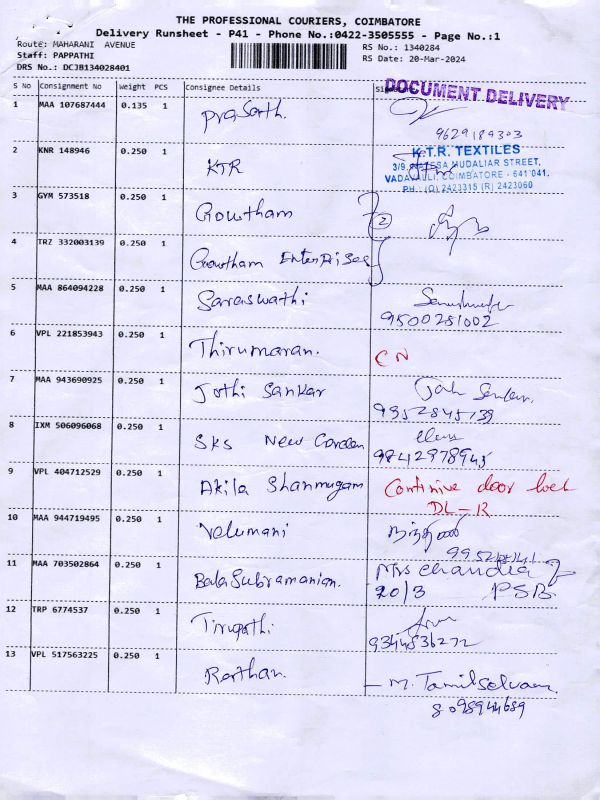 THE PROFESSIONAL COURIERS, COIMBATORE
Delivery Runsheet - P41 - Phone No.:0422-3505555 - Page No.:1
Route: MAHARANI AVENUE
RS No.: 1340284
Staff: PAPPATHI
RS Date: 20-Mar-2024
DRS No.: DCJB134028401
S No Consignment No Weight PCS Consignee Details
DOCUMENT DELIVERY
1 MAA 107687444 0.135 1 Prasanth.
9629189303
2 KNR 148946 0.250 1 KTR
K.T.R. TEXTILES
MUDALIAR STREET,
VADAVALLI, COIMBATORE - 641 041.
PH : (O) 2423315 (R) 2423060
3 GYM 573518 0.250 1 Gowtham
2
4 TRZ 332003139 0.250 1 Gowtham Enterprises
5 MAA 864094228 0.250 1 Saraswathi
9500281002
6 VPL 221853943 0.250 1 Thirumaran. CN
7 MAA 943690925 0.250 1 Jothi Sankar
9952845139
8 IXM 506096068 0.250 1 SKS New Garden
9842978945
9 VPL 404712529 0.250 1 Akila Shanmugam Continive door lock
DL-R
10 MAA 944719495 0.250 1 Velumani
11 MAA 703502864 0.250 1 BalaSubramanian. Mrs chandra
20/3 PSB
12 TRP 6774537 0.250 1 Tirupathi
9344836272
13 VPL 517563225 0.250 1 M. Tamilselvan
8098944689